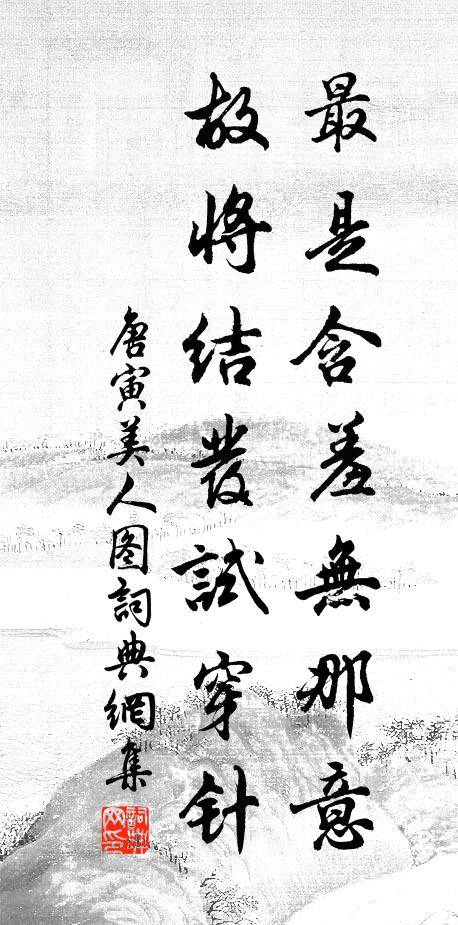 最是含羞無那意
故將结發試穿针
唐寅美人图詞典網集